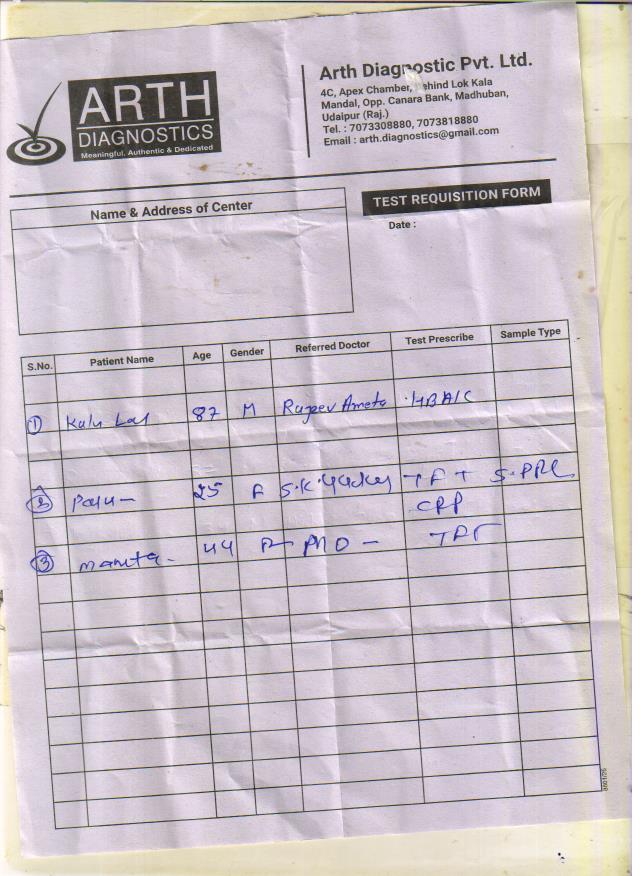 ARTH
DIAGNOSTICS
Meaningful, Authentic & Dedicated
Arth Diagnostic Pvt. Ltd.
4C, Apex Chamber, ehind Lok Kala
Mandal, Opp. Canara Bank, Madhuban,
Udaipur (Raj.)
Tel. : 7073308880, 7073818880
Email : arth.diagnostics@gmail.com
Name & Address of Center
TEST REQUISITION FORM
Date :
S.No. Patient Name Age Gender Referred Doctor Test Prescribe Sample Type
① Kalu Lal 87 M Rajeev Ameta HBA1C
② 25 F S.K. TFT S.PRL
CRP
③ mamta - 44 F MO -